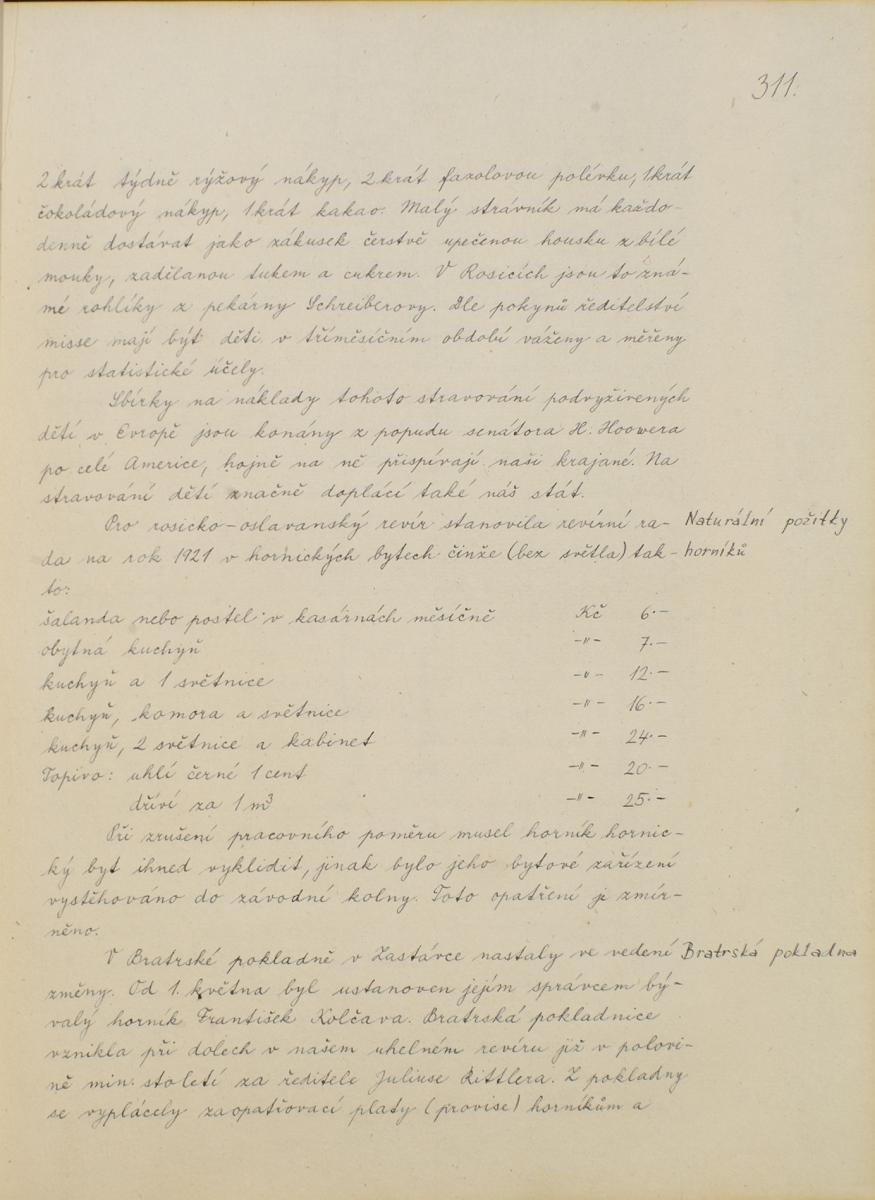 311.
2 krát týdně rýžový nákyp, 2 krát fazolovou polévku, 1 krát
čokoládový nákyp, 1 krát kakao. Malý strávník má každo-
denně dostávat jako zákusek čerstvě upečenou housku z bílé
mouky, zadělanou tukem a cukrem. V Rosicích jsou to zná-
mé rohlíky z pekárny Schreiberovy. Dle pokynů ředitelství
misse mají být děti v tříměsíčním období váženy a měřeny
pro statistické účely.
Sbírky na náklady tohoto stravování podvyživených
dětí v Evropě jsou konány z popudu senátora H. Hoowera
po celé Americe, hojně na ně přispívají naši krajané. Na
stravování dětí značně doplácí také náš stát.
Pro rosicko-oslavanský revír stanovila revírní ra- Naturální požitky
da na rok 1921 v hornických bytech činže (bez světla) tak- horníků
to:
šalanda nebo postel v kasárnách měsíčně Kč 6.-
obytná kuchyň -"- 7.-
kuchyň a 1 světnice -"- 12.-
kuchyň, komora a světnice -"- 16.-
kuchyň, 2 světnice a kabinet -"- 24.-
Topivo: uhlí černé 1 cent -"- 20.-
dříví za 1 m³ -"- 25.-
Při zrušení pracovního poměru musel horník hornic-
ký byt ihned vyklidit, jinak bylo jeho bytové zařízení
vystěhováno do závodní kolny. Toto opatření je zmír-
něno.
V Bratrské pokladně v Zastávce nastaly ve vedení Bratrská pokladna
změny. Od 1. května byl ustanoven jejím správcem bý-
valý horník František Kolčava. Bratrská pokladnice
vznikla při dolech v našem uhelném revíru již v polovi-
ně min. století za ředitele Juliuse Rittlera. Z pokladny
se vyplácely zaopatřovací platy (provise) horníkům a